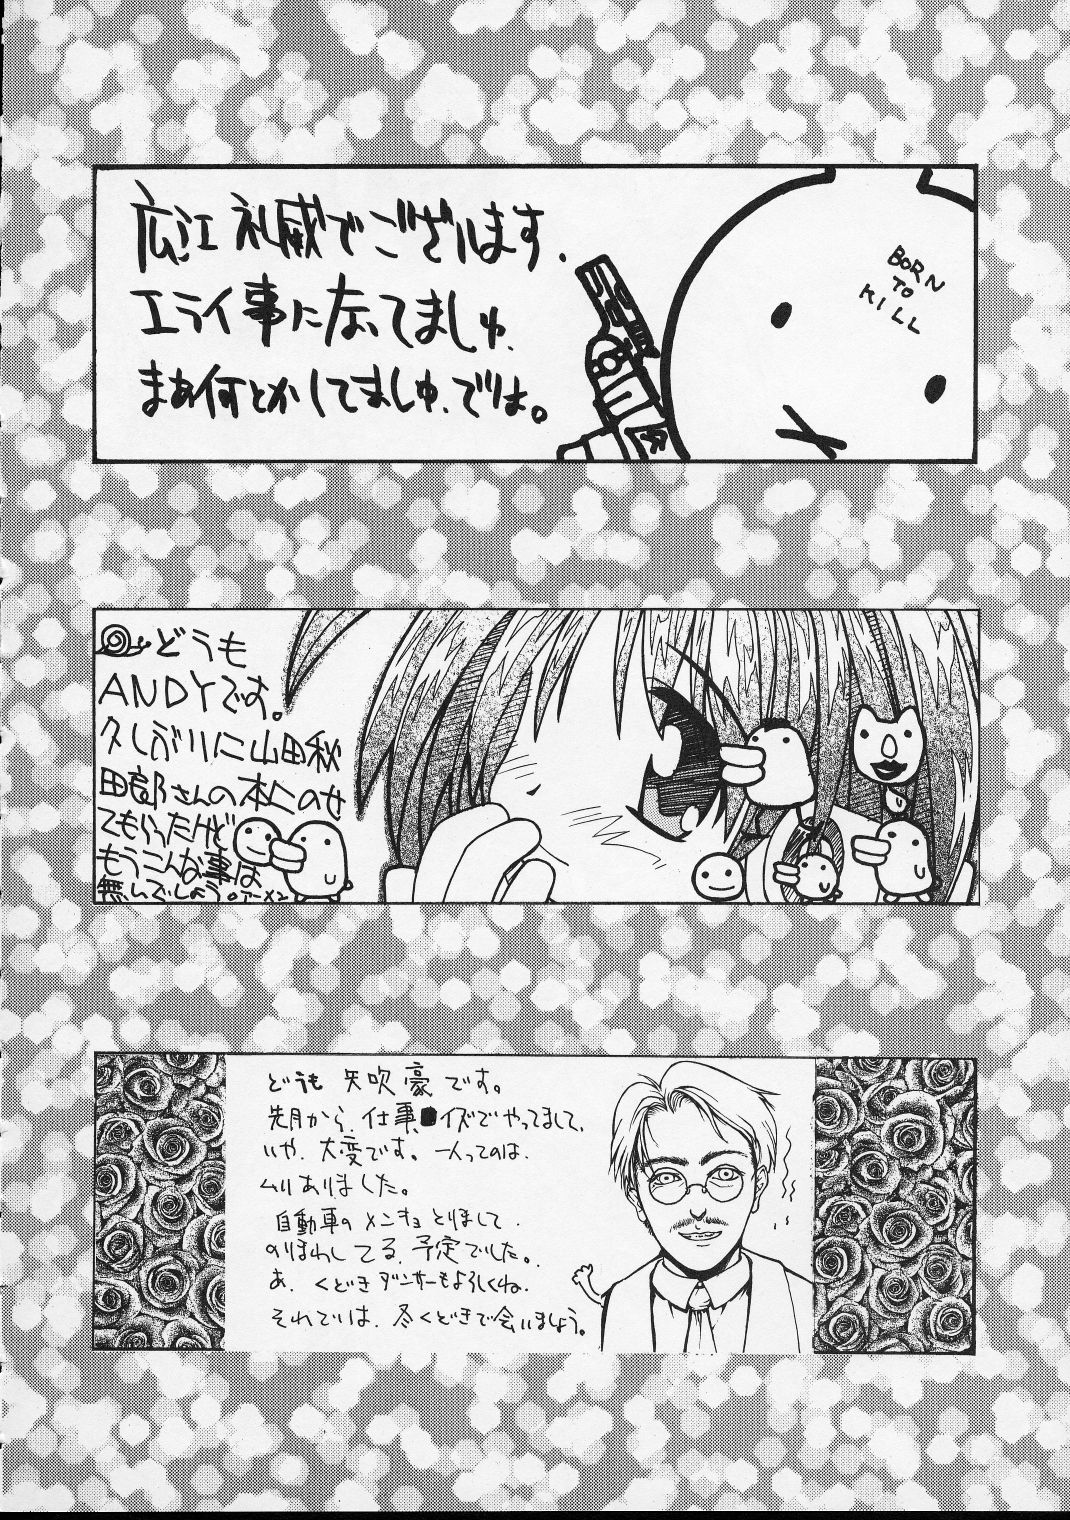 広江礼威でございます.
エライ事になってましゅ.
まぁ何とかしてましゅ、では。
BORN
TO
KILL
どうも
ANDYです。
久しぶりに山田秋
太郎さんの本にのせ
てもらったけど
もうこんな事は
無いでしょう。
どうも 矢吹豪です。
先月から、仕事、イズでやってまして、
いや、大変です。一人ってのは、
ムリありました。
自動車のメンキョとりまして、
のりまわしてる、予定でした。
あ、くどきダンサーもよろしくね、
それでは、冬くどきで会いましょう。